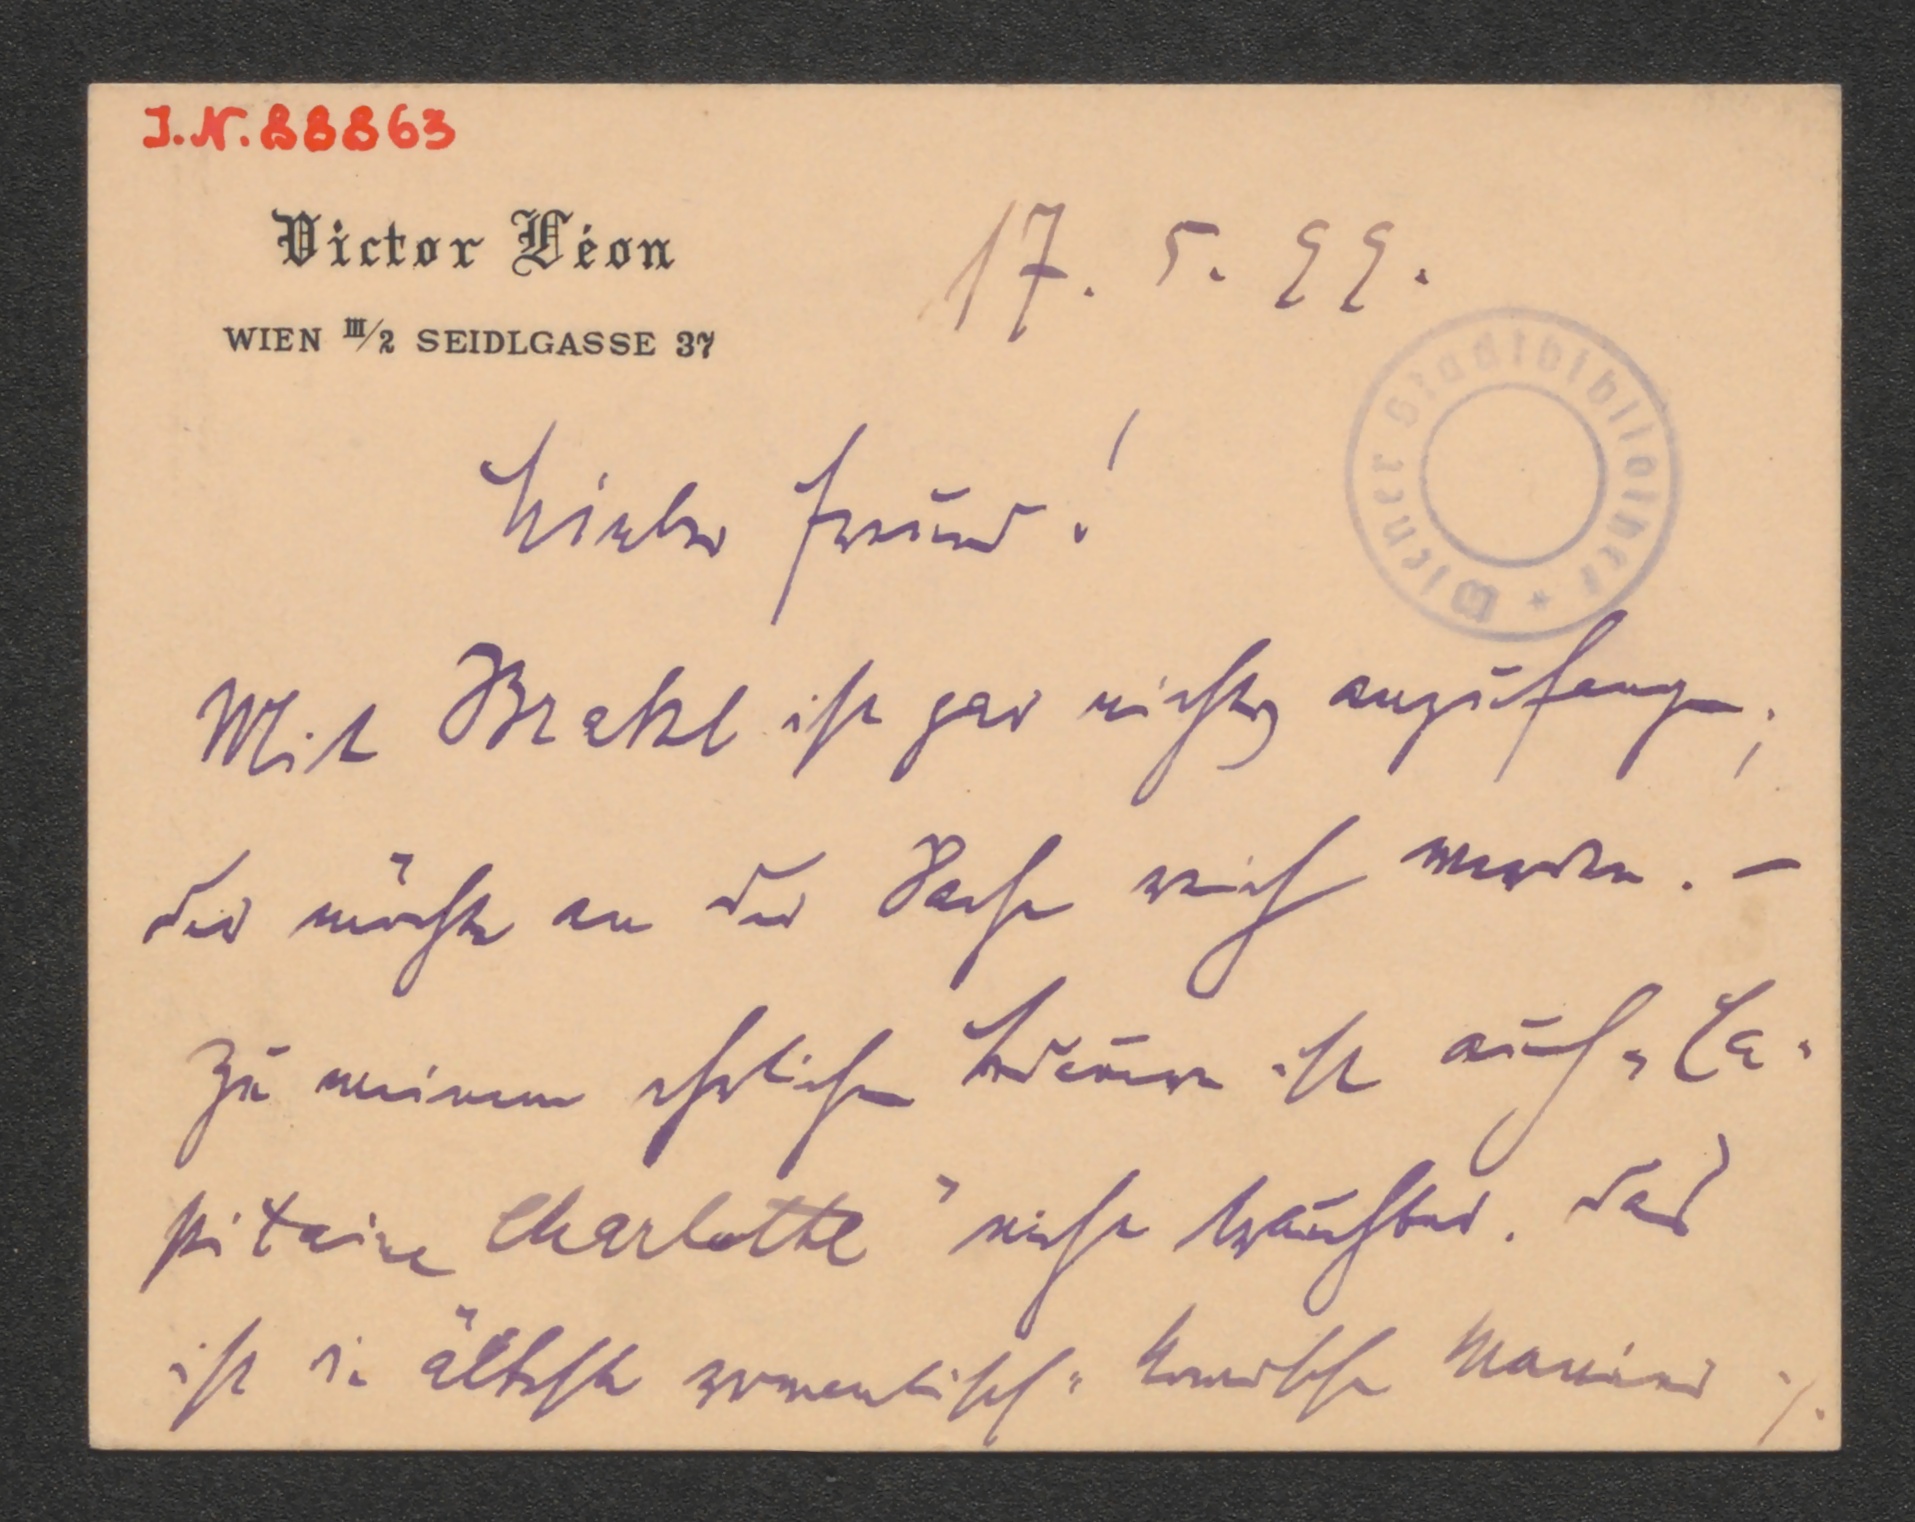 I.N. 88863
Victor Léon
WIEN III/2 SEIDLGASSE 37
17. 5. 99.
Wiener Stadtbibliothek *
Lieber Freund!
Mit Brakl ist gar nichts anzufangen;
der möchte an der Sache reich werden. –
Zu meinem ehrlichen Bedauern ist auch „Ca-
pitaine Charlotte" nicht brauchbar. Das
ist die älteste romantisch-komische Manier
./.